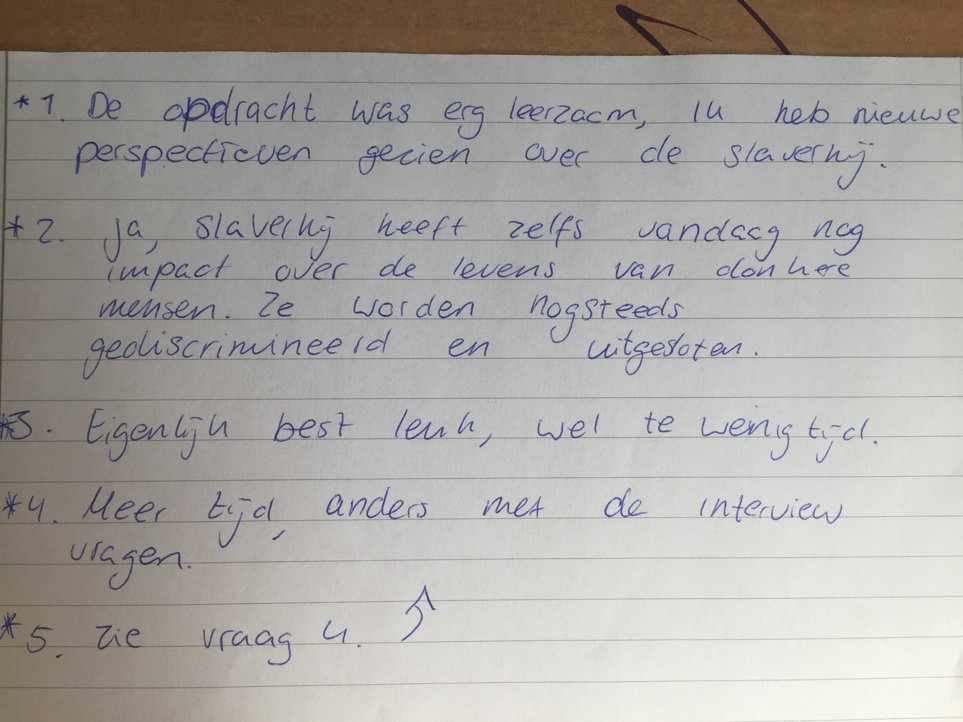 *1. De opdracht was erg leerzaam, Ik heb nieuwe
perspectieven gezien over de slavernij.
*2. Ja, slavernij heeft zelfs vandaag nog
impact over de levens van donkere
mensen. Ze worden nogsteeds
gediscrimineerd en uitgesloten.
*3. Eigenlijk best leuk, wel te weinig tijd.
*4. Meer tijd, anders met de interview
vragen.
*5. zie vraag 4.